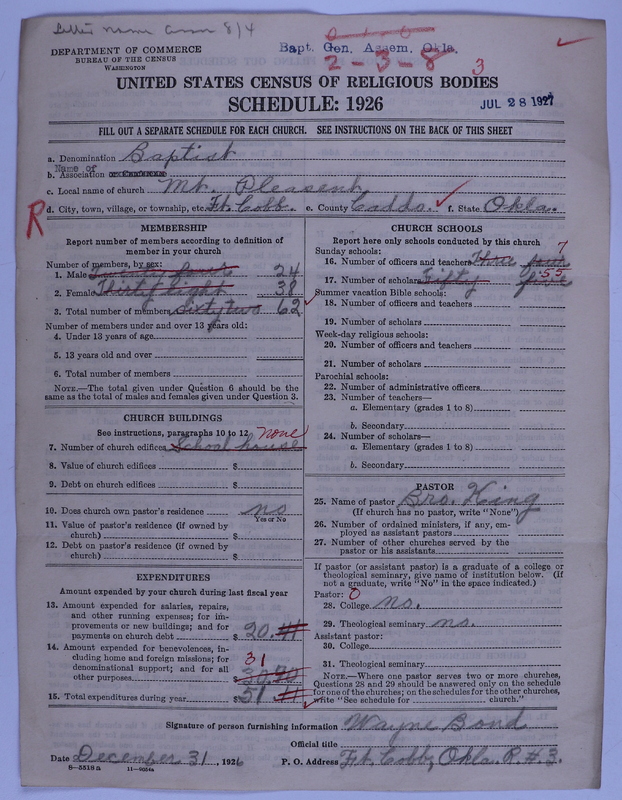 Letter name 8/4
DEPARTMENT OF COMMERCE
BUREAU OF THE CENSUS
WASHINGTON
Bapt. Gen. Assem. Okla.
2-3-8
3
UNITED STATES CENSUS OF RELIGIOUS BODIES
SCHEDULE: 1926
JUL 28 1927
FILL OUT A SEPARATE SCHEDULE FOR EACH CHURCH. SEE INSTRUCTIONS ON THE BACK OF THIS SHEET
a. Denomination Baptist
Name of
b. Association
c. Local name of church Mt. Pleasent
R
d. City, town, village, or township, etc. Ft. Cobb. e. County Caddo. f. State Okla.
MEMBERSHIP
Report number of members according to definition of
member in your church
Number of members, by sex:
1. Male Twenty four 24
2. Female Thirty Eight 38
3. Total number of members Sixty two 62
Number of members under and over 13 years old:
4. Under 13 years of age
5. 13 years old and over
6. Total number of members
NOTE.—The total given under Question 6 should be the
same as the total of males and females given under Question 3.
CHURCH BUILDINGS
See instructions, paragraphs 10 to 12 none
7. Number of church edifices School house
8. Value of church edifices $
9. Debt on church edifices $
10. Does church own pastor's residence no
Yes or No
11. Value of pastor's residence (if owned by
church) $
12. Debt on pastor's residence (if owned by
church) $
EXPENDITURES
Amount expended by your church during last fiscal year
13. Amount expended for salaries, repairs,
and other running expenses; for im-
provements or new buildings; and for
payments on church debt $ 20.
14. Amount expended for benevolences, in-
cluding home and foreign missions; for
denominational support; and for all
other purposes $ 31
15. Total expenditures during year $ 51
CHURCH SCHOOLS
Report here only schools conducted by this church
Sunday schools: 7
16. Number of officers and teachers
17. Number of scholars Fifty five 55
Summer vacation Bible schools:
18. Number of officers and teachers
19. Number of scholars
Week-day religious schools:
20. Number of officers and teachers
21. Number of scholars
Parochial schools:
22. Number of administrative officers
23. Number of teachers—
a. Elementary (grades 1 to 8)
b. Secondary
24. Number of scholars—
a. Elementary (grades 1 to 8)
b. Secondary
PASTOR
25. Name of pastor Bro. King
(If church has no pastor, write "None")
26. Number of ordained ministers, if any, em-
ployed as assistant pastors
27. Number of other churches served by the
pastor or his assistants
If pastor (or assistant pastor) is a graduate of a college or
theological seminary, give name of institution below. (If
not a graduate, write "No" in the space indicated.)
Pastor: 0
28. College no.
29. Theological seminary no.
Assistant pastor:
30. College
31. Theological seminary
NOTE.—Where one pastor serves two or more churches,
Questions 28 and 29 should be answered only on the schedule
for one of the churches; on the schedules for the other churches,
write "See schedule for church."
Signature of person furnishing information Wayne Bond
Official title
Date December 31, 1926 P. O. Address Ft. Cobb, Okla. R.#.3.
8—5518a 11—9054a